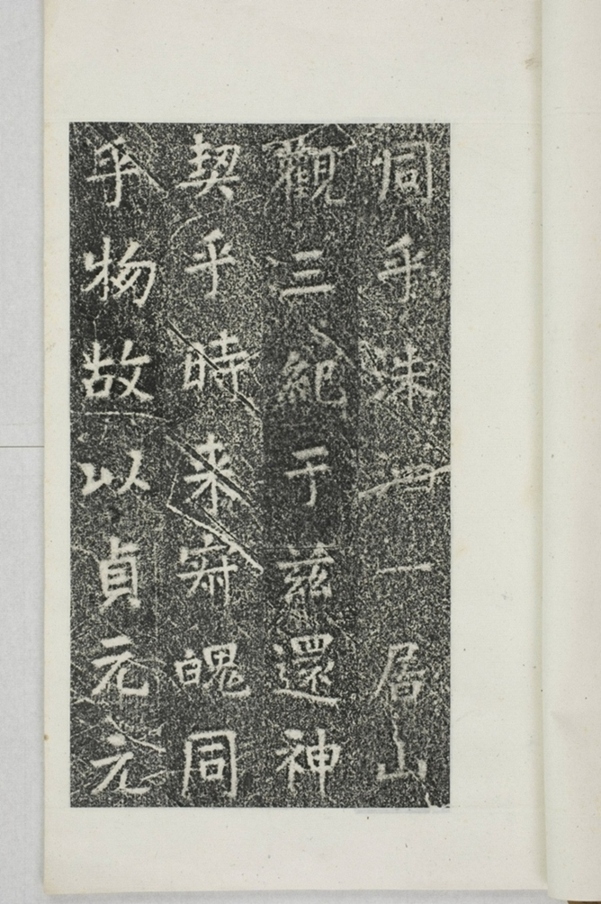 乎洙泗一居山
觀三紀于茲還神
契乎時来魄同
乎物故以貞元元